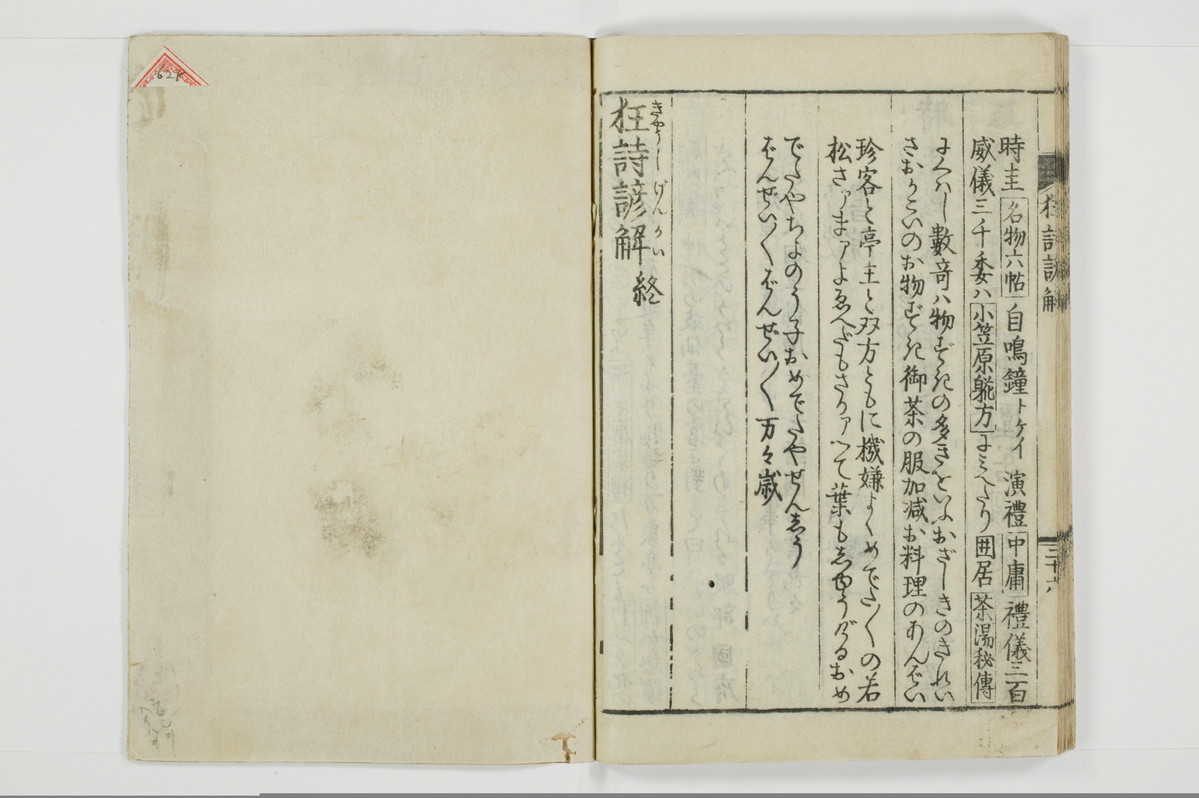 時圭 名物六帖 自鳴鐘トケイ 演禮 中庸 禮儀三百
威儀三千委ハ 小笠原躾方 よミへたり 囲居 茶湯秘傳
にくハし 數奇ハ物ずきの多きをいふおざしきのきれい
さおかこいのお物ずき御茶の服加减お料理のあんばい
珍客と亭主と双方ともに機嫌よくめでた〱の若
松さァまァよゑへだもさかァへて葉もしゆうげるおめ
でたやちよのう子おめでたやせんしう
ばんぜい〱ばんぜい〱万々歳
狂詩諺解終
きやうしげんかい
狂詩諺解
三十六
628